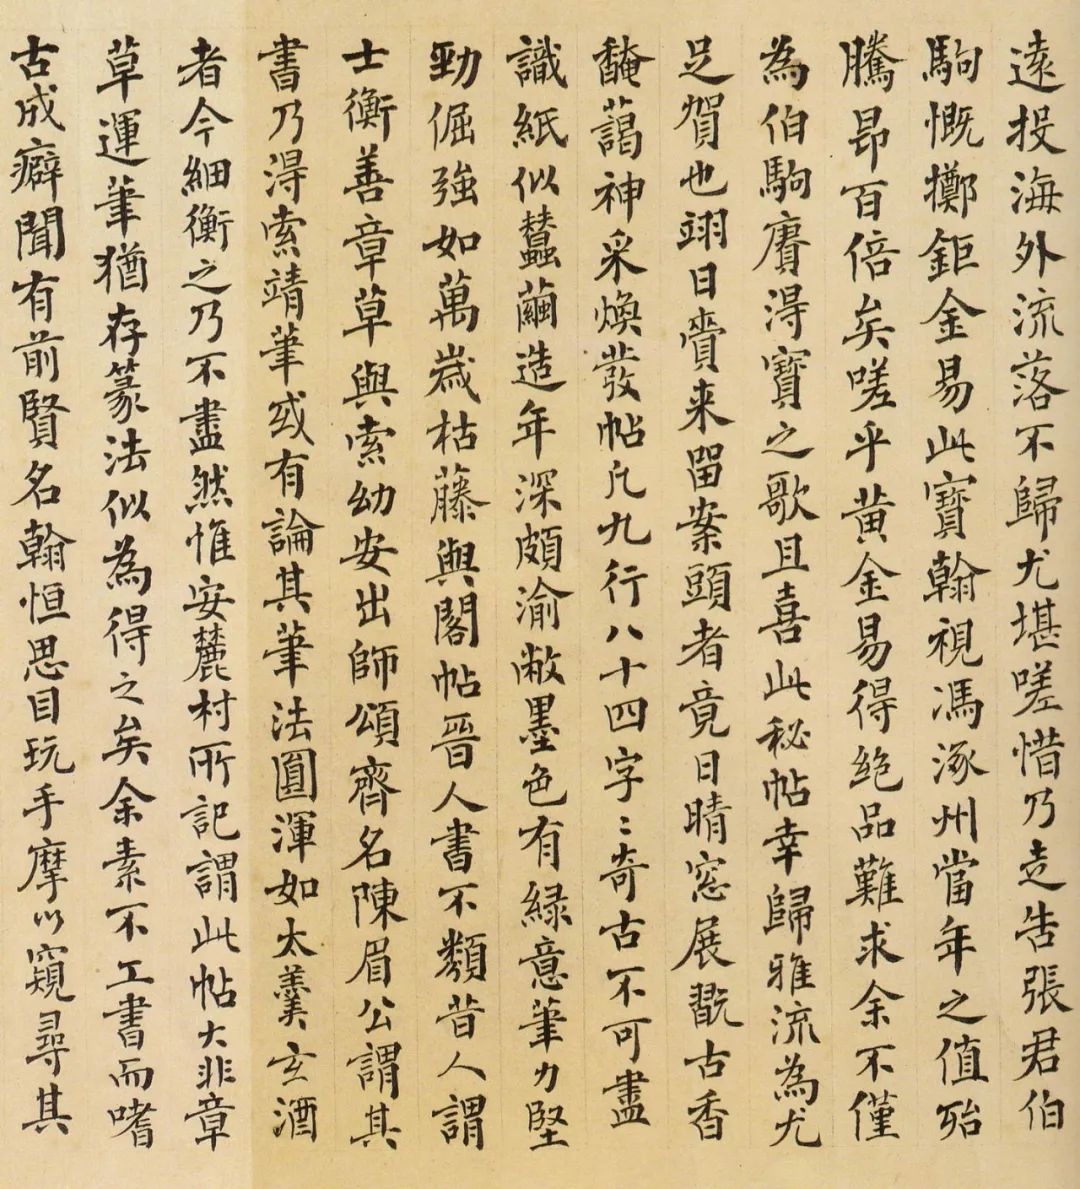 遠投海外流落不歸尤堪嗟惜乃走告張君伯
駒慨擲鉅金易此寶翰視馮涿州當年之值殆
騰昂百倍矣嗟乎黃金易得絶品難求余不僅
為伯駒賡得寶之歌且喜此秘帖幸歸雅流為尤
足賀也翊日賫来留案頭者竟日晴窓展翫古香
馣藹神采煥發帖凡九行八十四字〻奇古不可盡
識紙似蠶繭造年深頗渝敝墨色有緑意筆力堅
勁倔強如萬歲枯藤與閣帖晉人書不類昔人謂
士衡善章草與索幼安出師頌齊名陳眉公謂其
書乃得索靖筆或有論其筆法圓渾如太羹玄酒
者今細衡之乃不盡然惟安麓村所記謂此帖大非章
草運筆猶存篆法似為得之矣余素不工書而嗜
古成癖聞有前賢名翰恒思目玩手摩以窺尋其